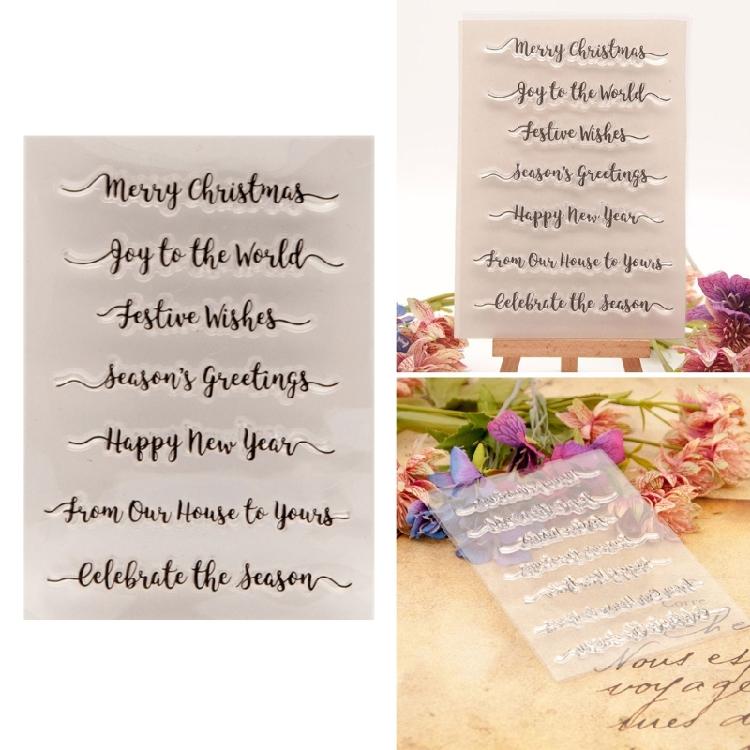 Merry Christmas
Joy to the World
Festive Wishes
Season's Greetings
Happy New Year
From Our House to Yours
Celebrate the Season
Merry Christmas
Joy to the World
Festive Wishes
Season's Greetings
Happy New Year
From Our House to Yours
Celebrate the Season
Corre
Nous es
voyage
tues d